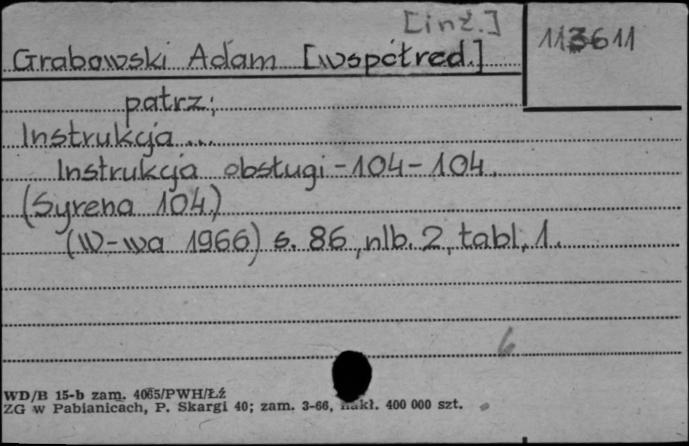 [inż.]
Grabowski Adam [współred.]
113611
patrz;
Instrukcja...
Instrukcja obsługi - 104 - 104.
(Syrena 104)
(W-wa 1966) s. 86, nlb. 2, tabl. 1.
6
WD/B 15-b zam. 4065/PWH/Łź
ZG w Pabianicach, P. Skargi 40; zam. 3-66, nakł. 400 000 szt.